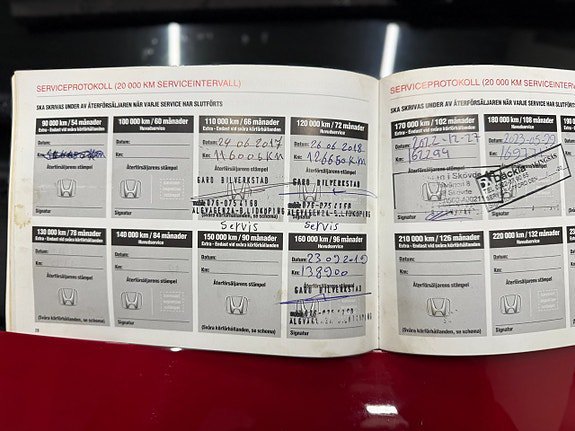 SERVICEPROTOKOLL (20 000 KM SERVICEINTERVALL)
SKA SKRIVAS UNDER AV ÅTERFÖRSÄLJAREN NÄR VARJE SERVICE HAR SLUTFÖRTS
90 000 km / 54 månader
Extra - Endast vid svåra körförhållanden
Datum:
Km:
Återförsäljarens stämpel
Signatur
100 000 km / 60 månader
Huvudservice
Datum:
Km:
Återförsäljarens stämpel
Signatur
110 000 km / 66 månader
Extra - Endast vid svåra körförhållanden
Datum: 24 06 2017
Km: 116005 KM
Återförsäljarens stämpel
GARD BILVERKSTAD
Servis
120 000 km / 72 månader
Huvudservice
Datum: 26 06 2018
Km: 126660 KM
Återförsäljarens stämpel
GARD BILVERKSTAD
Servis
130 000 km / 78 månader
Huvudservice
Datum:
Km:
Återförsäljarens stämpel
(Svåra körförhållanden, se schema)
140 000 km / 84 månader
Huvudservice
Datum:
Km:
Återförsäljarens stämpel
Signatur
150 000 km / 90 månader
Extra - Endast vid svåra körförhållanden
Datum:
Km:
Återförsäljarens stämpel
(Svåra körförhållanden, se schema)
160 000 km / 96 månader
Huvudservice
Datum: 23 09 2019
Km: 138900
Återförsäljarens stämpel
GARD BILVERKSTAD
SERVICEPROTOKOLL (20 000 KM SERVICEINTERVA
SKA SKRIVAS UNDER AV ÅTERFÖRSÄLJAREN NÄR VARJE SERVICE HAR SLUTFÖRTS
170 000 km / 102 månader
Extra - Endast vid svåra körförhållanden
Datum: 2022-12-27
Km: 162294
i Skövde
Signatur
180 000 km / 108 månader
Huvudservice
Datum:
Km:
Bäckla
Signatur
210 000 km / 126 månader
Huvudservice
Datum:
Km:
Återförsäljarens stämpel
(Svåra körförhållanden, se schema)
220 000 km / 132 månader
Huvudservice
Datum:
Km:
Återförsäljarens stämpel
Signatur